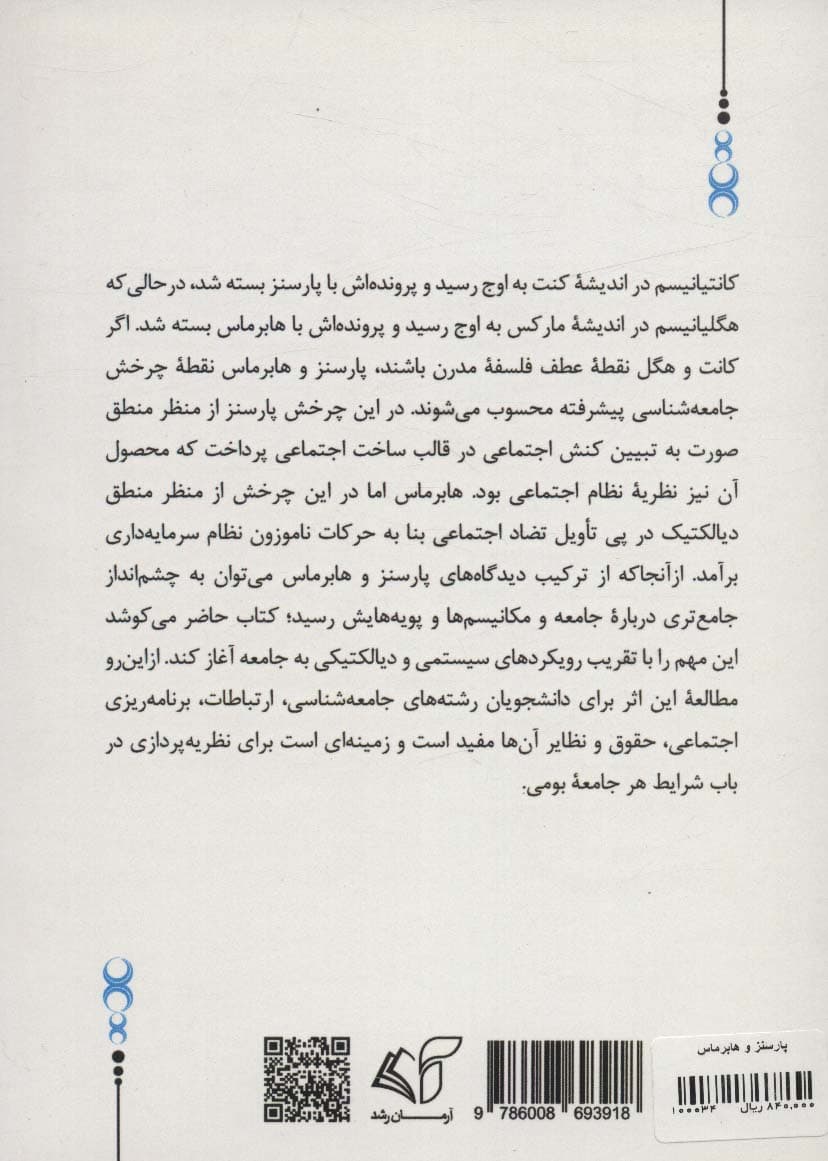 کانتیانیسم در اندیشهٔ کنت به اوج رسید و پرونده‌اش با پارسنز بسته شد، درحالی‌که
هگلیانیسم در اندیشهٔ مارکس به اوج رسید و پرونده‌اش با هابرماس بسته شد. اگر
کانت و هگل نقطهٔ عطف فلسفهٔ مدرن باشند، پارسنز و هابرماس نقطهٔ چرخش
جامعه‌شناسی پیشرفته محسوب می‌شوند. در این چرخش پارسنز از منظر منطق
صورت به تبیین کنش اجتماعی در قالب ساخت اجتماعی پرداخت که محصول
آن نیز نظریهٔ نظام اجتماعی بود. هابرماس اما در این چرخش از منظر منطق
دیالکتیک در پی تأویل تضاد اجتماعی بنا به حرکات ناموزون نظام سرمایه‌داری
برآمد. ازآنجاکه از ترکیب دیدگاه‌های پارسنز و هابرماس می‌توان به چشم‌انداز
جامع‌تری دربارهٔ جامعه و مکانیسم‌ها و پویه‌هایش رسید؛ کتاب حاضر می‌کوشد
این مهم را با تقریب رویکردهای سیستمی و دیالکتیکی به جامعه آغاز کند. ازاین‌رو
مطالعهٔ این اثر برای دانشجویان رشته‌های جامعه‌شناسی، ارتباطات، برنامه‌ریزی
اجتماعی، حقوق و نظایر آن‌ها مفید است و زمینه‌ای است برای نظریه‌پردازی در
باب شرایط هر جامعهٔ بومی.
پارسنز و هابرماس
۸۴۰,۰۰۰ ریال ۱۰۰۰۳۴
آرمــان رشد
9 786008 693918